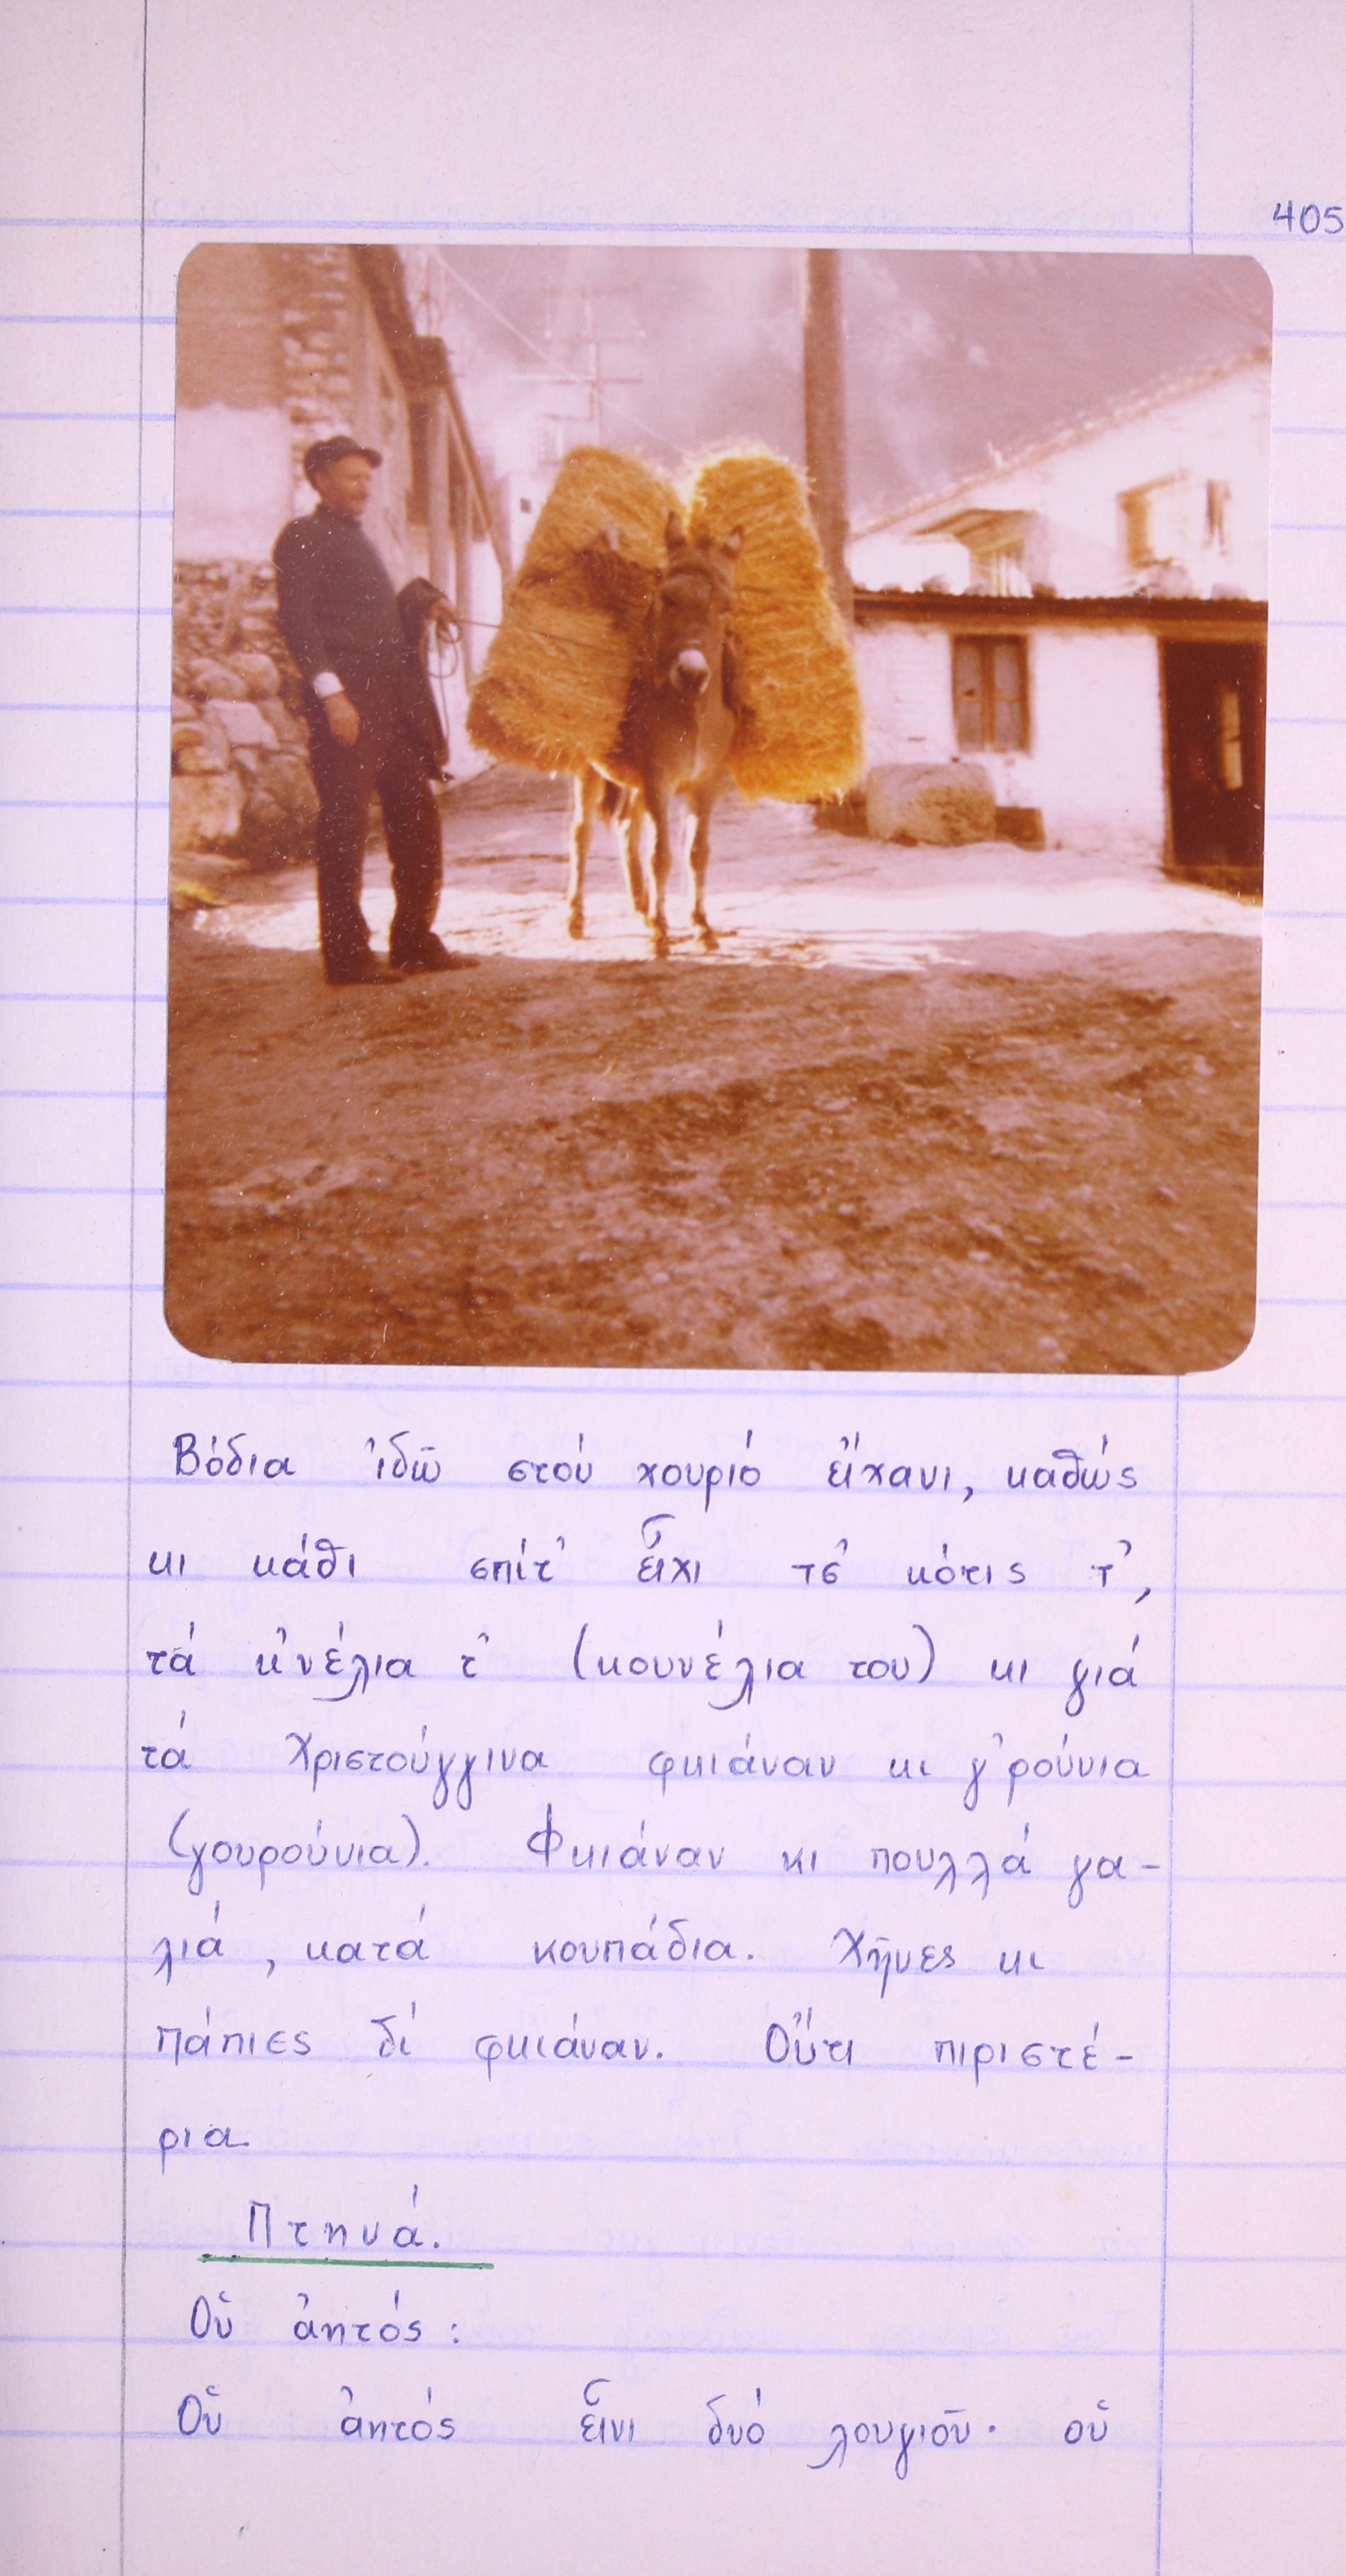 405
Βόδια ἰδῶ στού χουριό εἴχανι, καθώς
κι κάθι σπίτ' εἶχι τσ' κότις τ',
τά κ'νέλια τ' (κουνέλια του) κι γιά
τά Χριστούγγινα φκιάναν κι γ'ρούνια
(γουρούνια). Φκιάναν κι πουλλά γα-
λιά, κατά κουπάδια. Χῆνες κι
πάπιες δέ φκιάναν. Οὔτι πιριστέ-
ρια
Πτηνά.
Οὑ ἀητός:
Οὑ ἀητός εἶνι δυό λουγιοῦ· οὑ